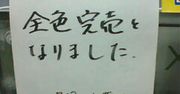 全色完売と
なりました.